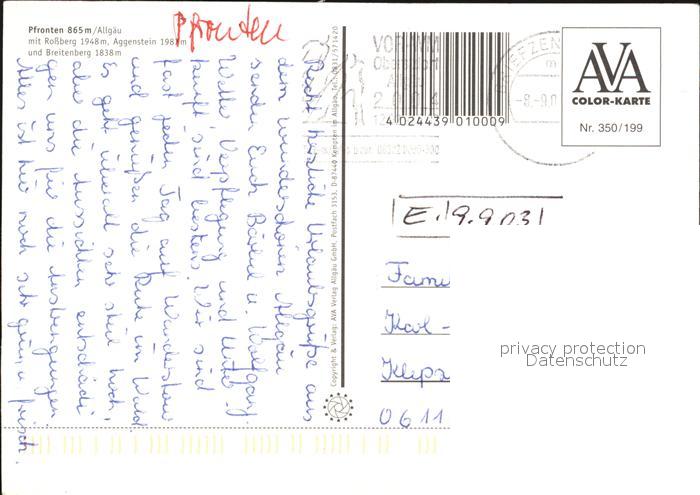 Pfronten 865m/Allgäu
mit Roßberg 1948m, Aggenstein 198 m
und Breitenberg 1838m
Pfronten
Recht herzliche Urlaubsgrüße aus
dem wunderschönen Allgäu
senden Euch Bärbel u. Wolfgang.
Wetter, Verpflegung und Unter-
kunft sind bestens. Wir sind
fast jeden Tag auf Wanderstour
und genießen die Ruhe im Wald.
Es geht überall sehr steil hoch,
aber die Aussichten entschädi-
gen uns für die Anstrengungen.
Alles ist hier noch sehr grün u. frisch.
Copyright & Verlag: AVA Verlag Allgäu GmbH, Postfach 3153, D-87440 Kempten im Allgäu, Tel. 0831/573420
4 024439 010009
-8.-9.0
AVA
COLOR-KARTE
Nr. 350/199
E. 19.9.03
Fami
Karl-
Kleps
0611
privacy protection
Datenschutz